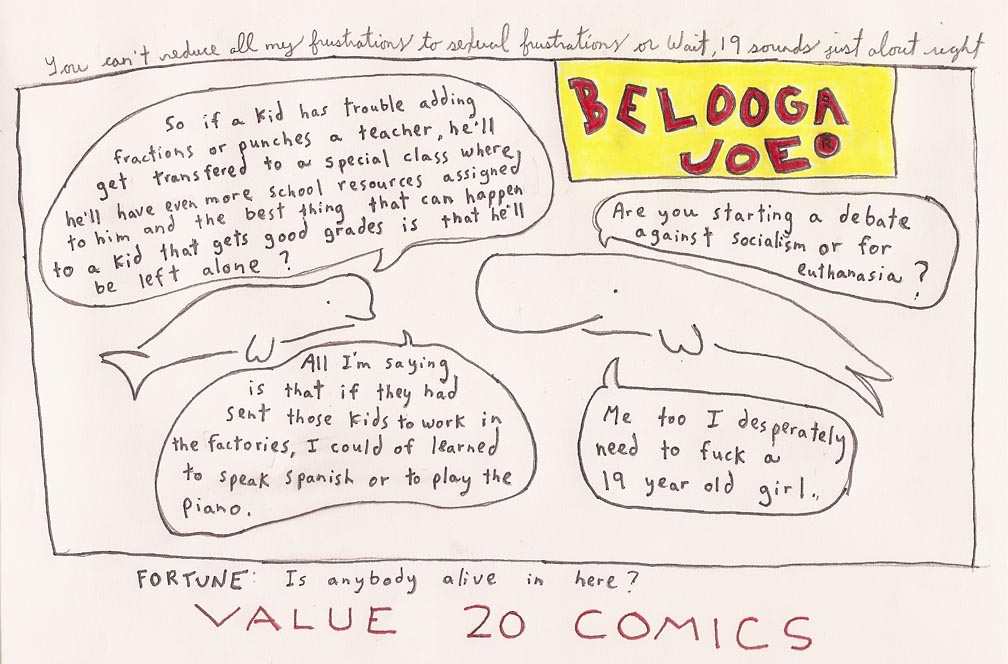 You can't reduce all my frustrations to sexual frustrations or Wait, 19 sounds just about right
BELOOGA
JOE®
So if a kid has trouble adding
fractions or punches a teacher, he'll
get transfered to a special class where
he'll have even more school resources assigned
to him and the best thing that can happen
to a kid that gets good grades is that he'll
be left alone?
Are you starting a debate
against socialism or for
euthanasia?
All I'm saying
is that if they had
sent those kids to work in
the factories, I could of learned
to speak spanish or to play the
piano.
Me too I desperately
need to fuck a
19 year old girl.
FORTUNE: Is anybody alive in here?
VALUE 20 COMICS